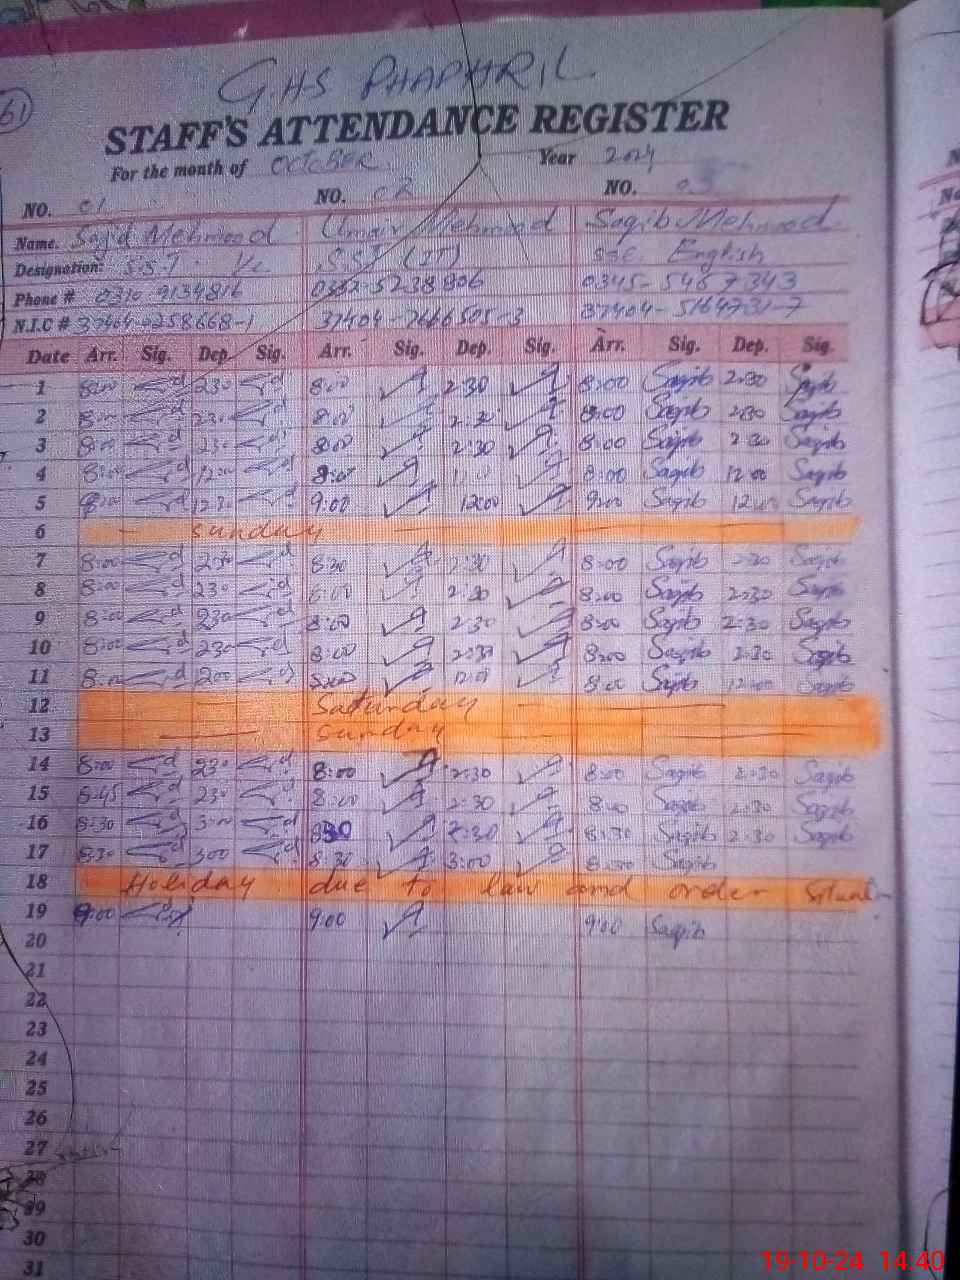 61
G.H.S PHAPHRIL
STAFF'S ATTENDANCE REGISTER
For the month of OCTOBER Year 2024
NO. 01 NO. 02 NO. 03
Name. Sajid Mehmood Umair Mehmood Saqib Mehmood
Designation: S.S.T S.S.T (IT) SSE English
Phone # 0310 9134816 0332-5238906 0345-5467343
N.I.C # 37404-0258668-1 37404-7666505-3 37404-5164731-7
Date Arr. Sig. Dep. Sig. Arr. Sig. Dep. Sig. Arr. Sig. Dep. Sig.
1 8:00 230 8:00 2:30 8:00 Saqib 2:30 Saqib
2 8:00 230 8:00 2:30 8:00 Saqib 2:30 Saqib
3 8:00 230 8:00 2:30 8:00 Saqib 2:30 Saqib
4 8:00 1200 8:00 8:00 Saqib 12:00 Saqib
5 9:00 12:00 9:00 Saqib 12:00 Saqib
6 Sunday
7 8:00 230 8:00 2:30 8:00 Saqib 2:30 Saqib
8 8:00 230 8:00 2:30 8:00 Saqib 2:30 Saqib
9 8:00 230 8:00 2:30 8:00 Saqib 2:30 Saqib
10 8:00 230 8:00 2:30 8:00 Saqib 2:30 Saqib
11 8:00 8:00 8:00 Saqib 12:00 Saqib
12 Saturday
13 Sunday
14 8:00 230 8:00 2:30 8:00 Saqib 2:30 Saqib
15 8:45 230 8:00 2:30 8:00 Saqib 2:30 Saqib
16 8:30 3:00 830 2:30 8:30 Saqib 2:30 Saqib
17 830 300 8:30 3:00 Saqib
18 Holiday due to law and order
19 9:00 9:00 9:00 Saqib
20
21
22
23
24
25
26
27
28
29
30
31
19-10-24 14:40